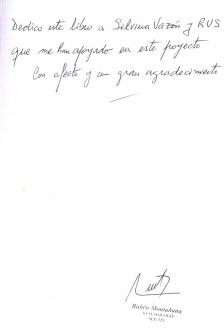 Dedico este libro a Silvina Vazón y RVS
que me han apoyado en este proyecto
Con afecto y un gran agradecimiento
Rubén Montañana
M.P. 521